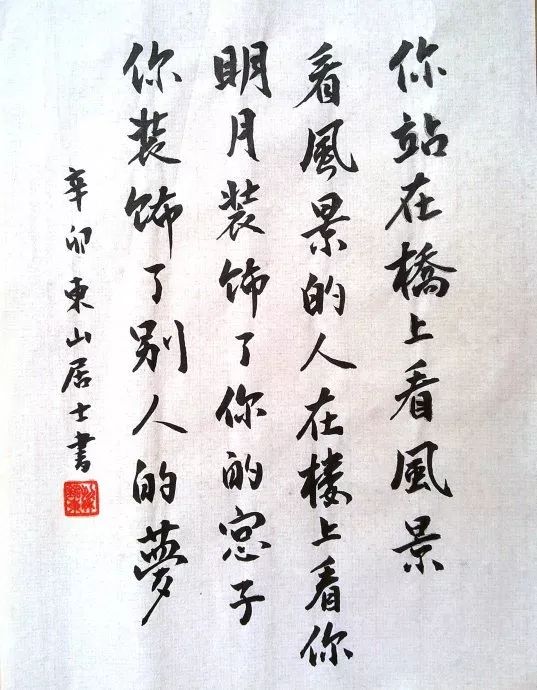 你站在橋上看風景
看風景的人在楼上看你
明月装饰了你的窓子
你装饰了别人的夢
辛卯東山居士書